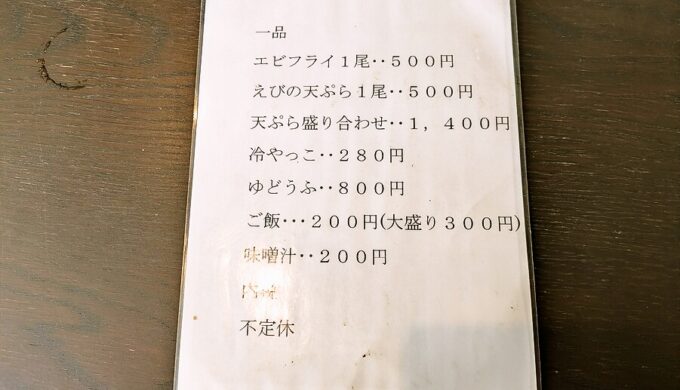 一品
エビフライ１尾‥５００円
えびの天ぷら１尾‥５００円
天ぷら盛り合わせ‥１，４００円
冷やっこ‥２８０円
ゆどうふ‥８００円
ご飯…２００円(大盛り３００円)
味噌汁‥２００円
不定休